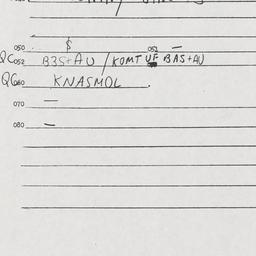 050 $ 053 —
QC052 B3S+AU / KOMT UF BAS+AU
QG060 KNASMOL .
070 —
080 —